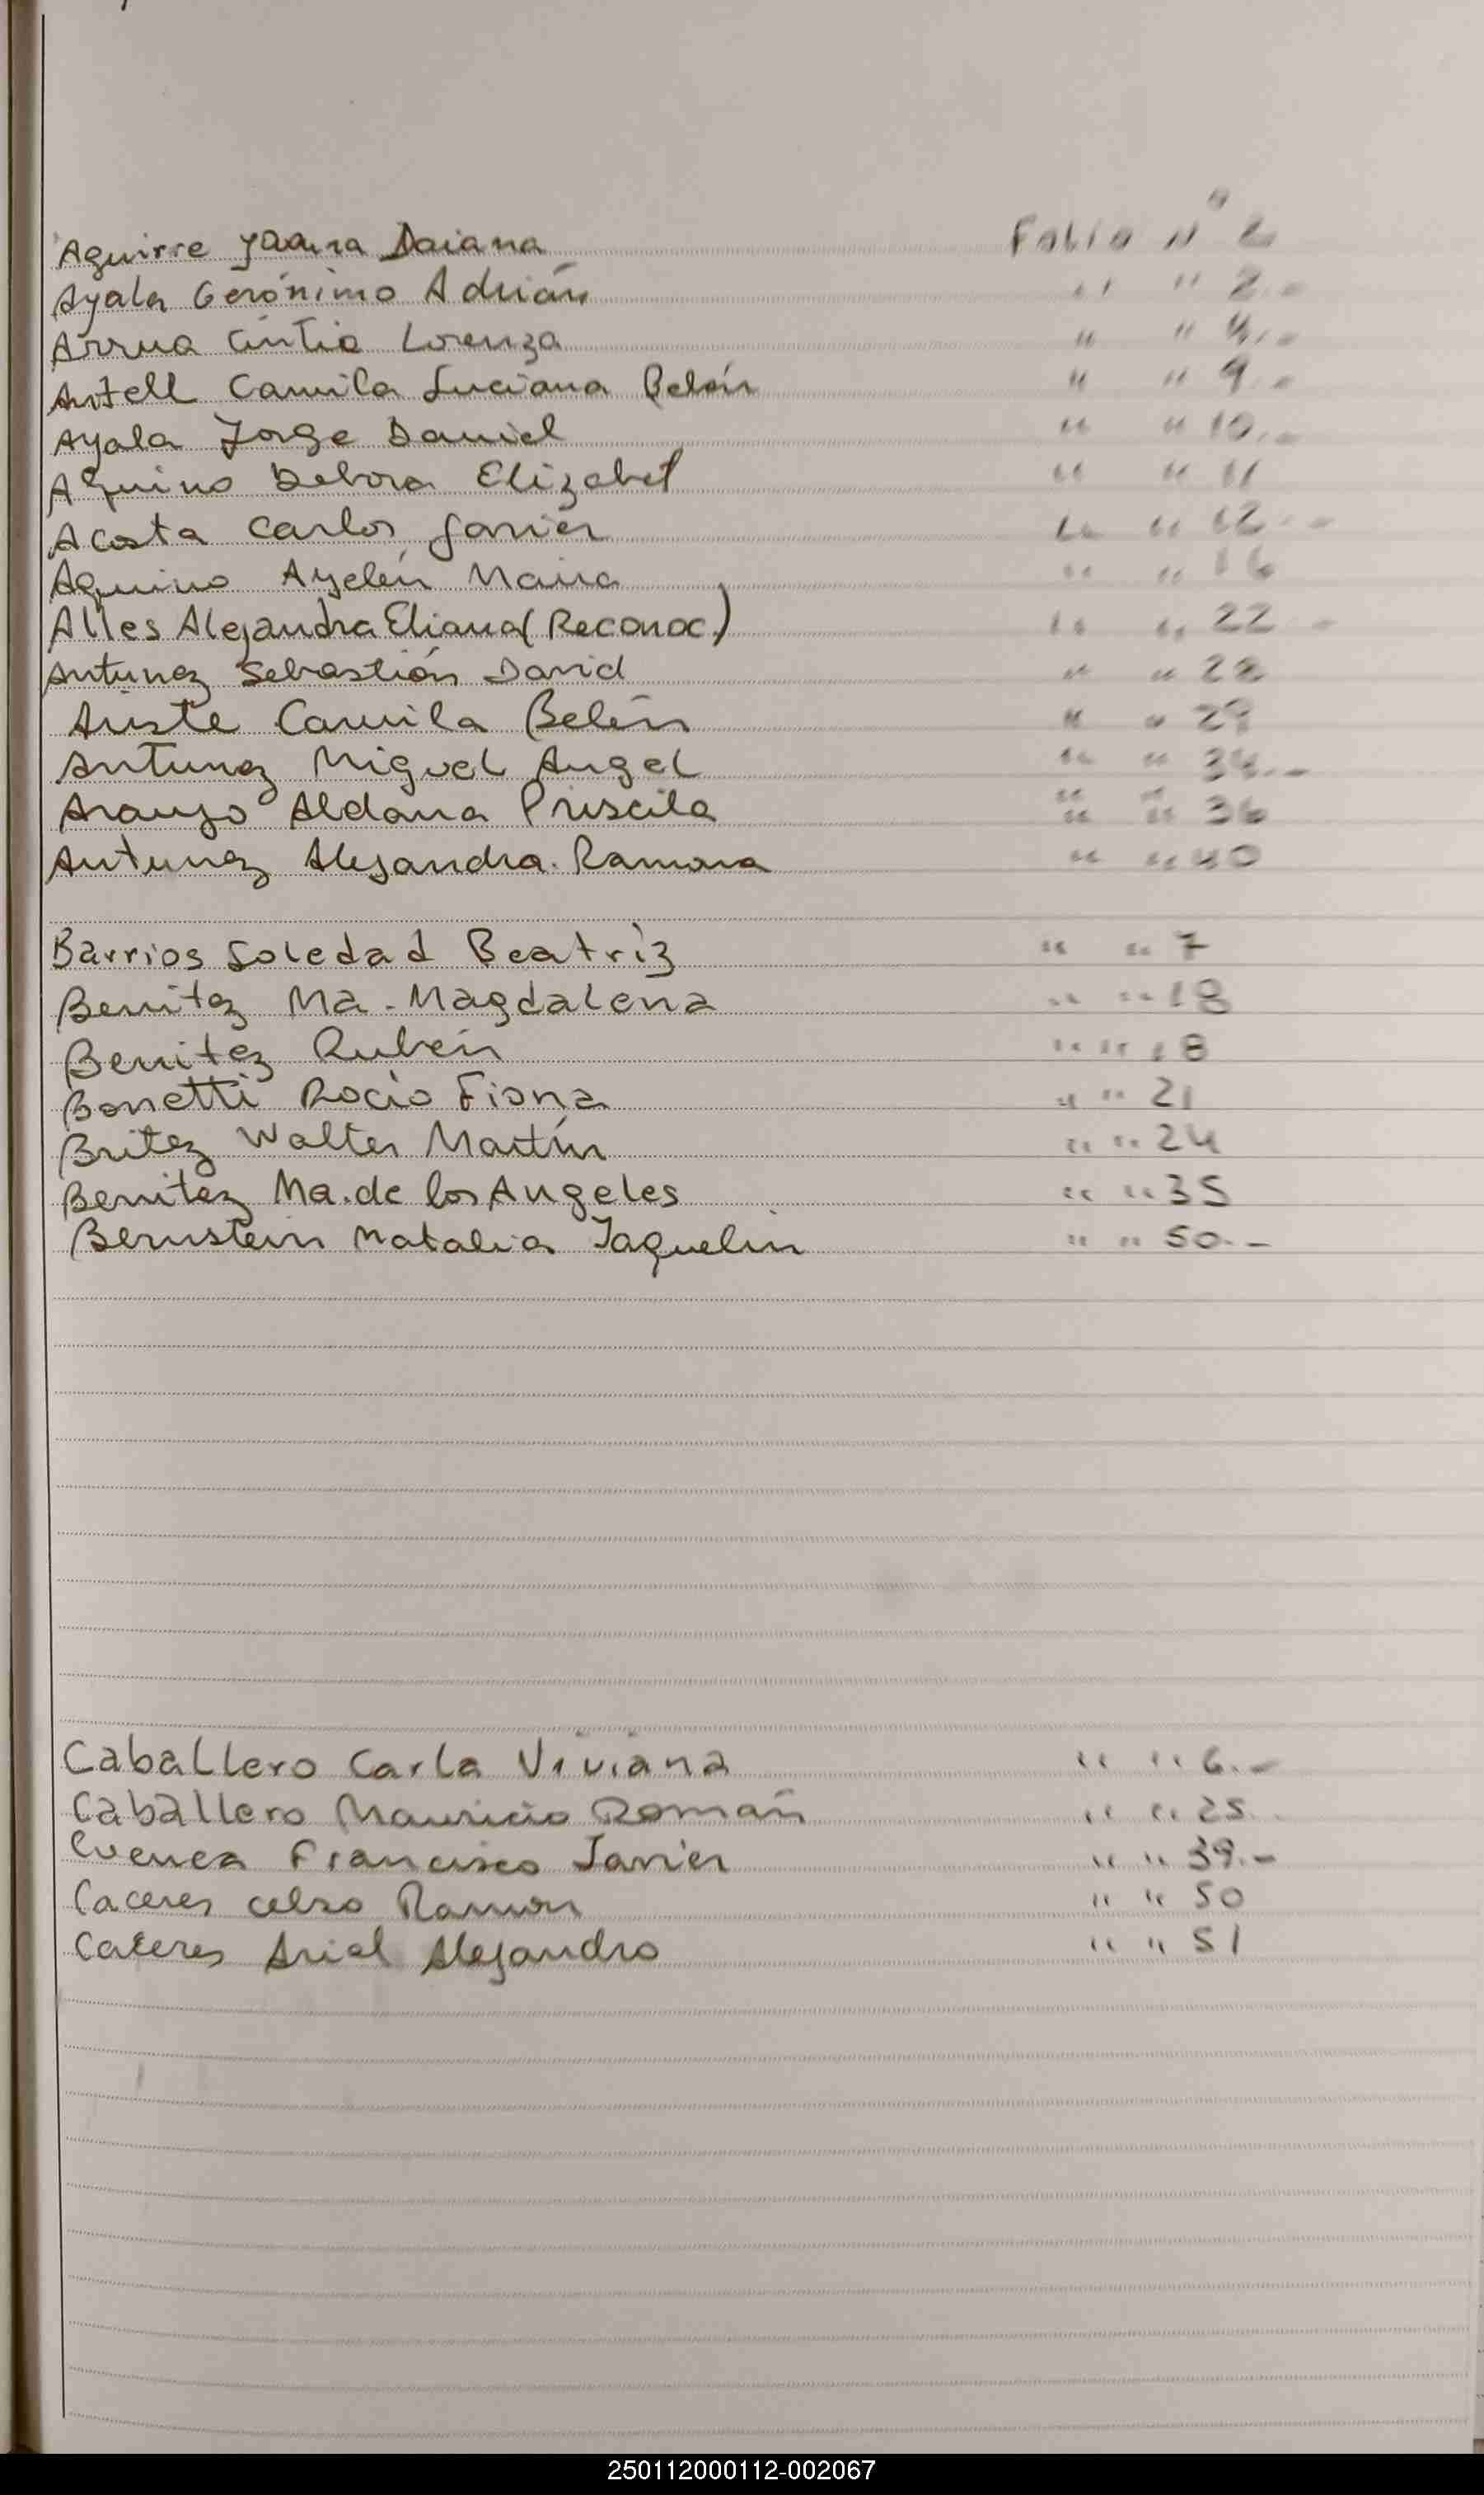 Aguirre Daiana Folio Nº 2
Ayala Gerónimo Adrián " " 2.-
Arrua Cintia Lorenza " " 4.-
Camila Luciana Belén " " 9.-
Ayala Jorge Daniel " " 10.-
Aquino Debora Elizabet " " 11
Acosta Carlos Javier " " 12.-
Aquino Ayelén Maira " " 16
Alles Alejandra Eliana (Reconoc.) " " 22 -
Antunez Sebastián David " " 28
Camila Belén " " 29
Antunez Miguel Angel " " 34.-
Araujo Aldana Priscila " " 36
Antunez Alejandra Ramona " " 40
Barrios Soledad Beatriz " " 7
Benitez Ma. Magdalena " " 18
Benitez Rubén " " 18
Bonetti Rocio Fiona " " 21
Britez Walter Martín " " 24
Benitez Ma. de los Angeles " " 35
Bernstein Natalia Jaquelin " " 50.-
Caballero Carla Viviana " " 6.-
Caballero Mauricio Román " " 25.
Cuenca Francisco Javier " " 39.-
Caceres Celso Ramon " " 50
Caceres Ariel Alejandro " " 51
250112000112-002067